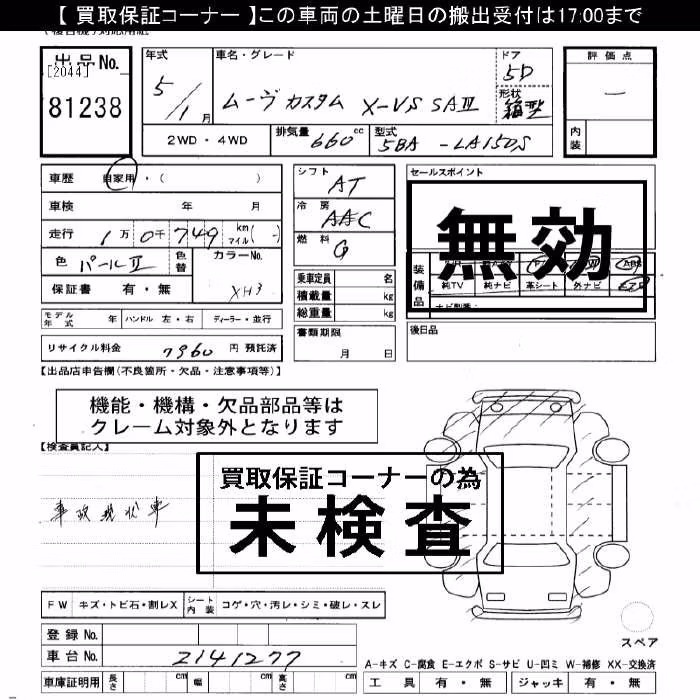 【 買取保証コーナー 】この車両の土曜日の搬出受付は17:00まで
出品No.
[2044]
81238
年式
5/1月
車名・グレード
ムーヴ カスタム X-VS SAⅢ
ドア
5D
形状
箱型
評価点
—
内装
2WD・4WD
排気量 660cc
型式 5BA - LA150S
車歴 自家用・( )
車検 年 月
走行 1万0千749 km マイル( - )
色 パールⅡ
色替
カラーNo.
XH3
保証書 有・無
シフト
AT
冷房
AAC
燃料
G
乗車定員 名
積載量 kg
総重量 kg
セールスポイント
無効
装備品
純TV 純ナビ 革シート 外ナビ
ABS
後日品
モデル年式 年
ハンドル 左・右
ディーラー・並行
書類期限
月 日
リサイクル料金 7960 円 預託済
【出品店申告欄(不良箇所・欠品・注意事項等)】
機能・機構・欠品部品等は
クレーム対象外となります
【検査員記入】
買取保証コーナーの為
未検査
事故現状車
FW キズ・トビ石・割レX
シート内装 コゲ・穴・汚レ・シミ・破レ・スレ
登録No.
車台No. Z141277
車庫証明用 長さ cm 幅 cm 高さ cm
スペア
A-キズ C-腐食 E-エクボ S-サビ U-凹ミ W-補修 XX-交換済
工具 有・無 ジャッキ 有・無